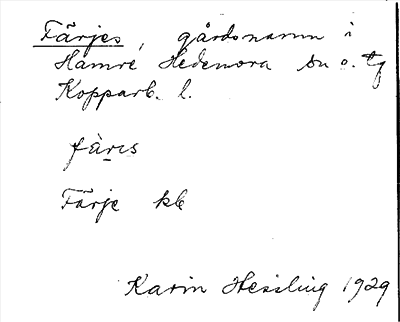 Färjes, gårdsnamn i
Hamre Hedemora sn o. tg
Kopparb. l.
fàrıs
Färje kb
Karin Hessling 1929